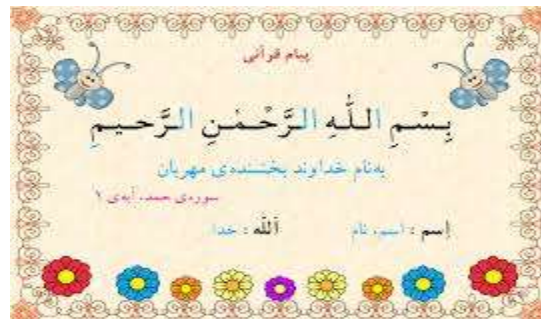 پیام قرآنی
بِسْمِ اللّٰهِ الرَّحْمٰنِ الرَّحیمِ
به‌نام خداوند بخشنده‌ی مهربان
سوره‌ی حمد، آیه‌ی ۱
اِسم : اسم، نام اَللّٰه : خدا